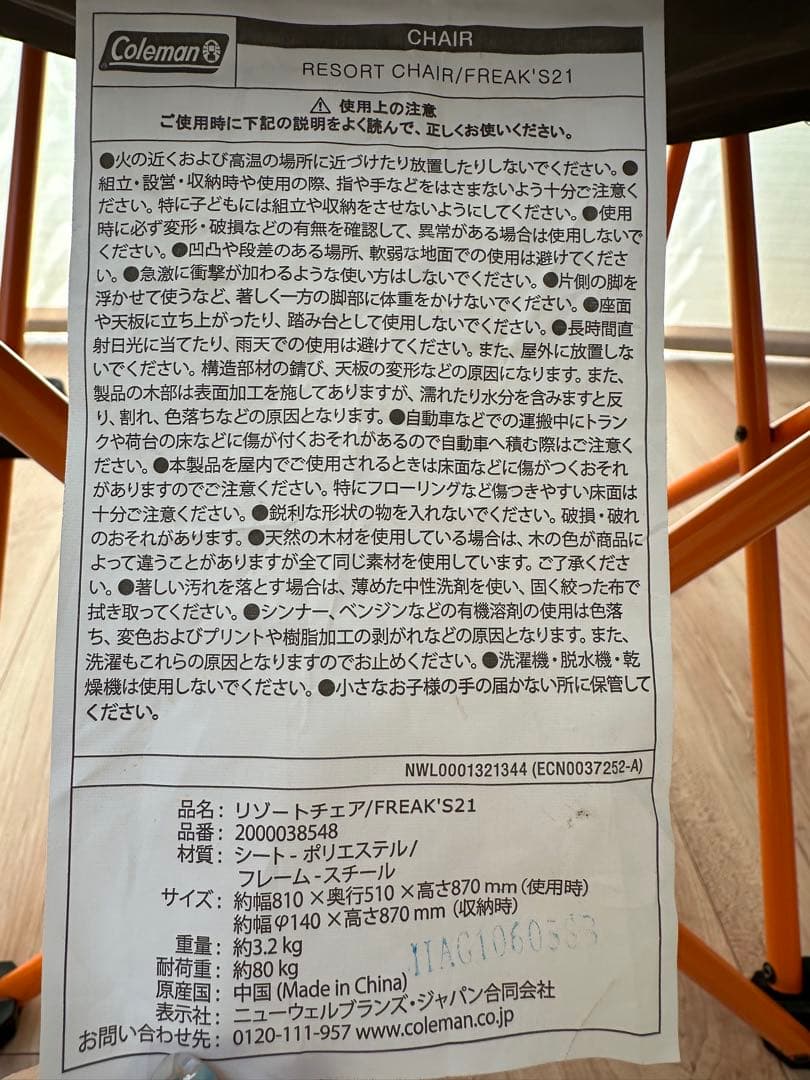 Coleman
CHAIR
RESORT CHAIR/FREAK'S21
⚠ 使用上の注意
ご使用時に下記の説明をよく読んで、正しくお使いください。
●火の近くおよび高温の場所に近づけたり放置したりしないでください。●
組立・設営・収納時や使用の際、指や手などをはさまないよう十分ご注意く
ださい。特に子どもには組立や収納をさせないようにしてください。●使用
時に必ず変形・破損などの有無を確認して、異常がある場合は使用しないで
ください。●凹凸や段差のある場所、軟弱な地面での使用は避けてくださ
い。●急激に衝撃が加わるような使い方はしないでください。●片側の脚を
浮かせて使うなど、著しく一方の脚部に体重をかけないでください。●座面
や天板に立ち上がったり、踏み台として使用しないでください。●長時間直
射日光に当てたり、雨天での使用は避けてください。また、屋外に放置しな
いでください。構造部材の錆び、天板の変形などの原因になります。また、
製品の木部は表面加工を施してありますが、濡れたり水分を含みますと反
り、割れ、色落ちなどの原因となります。●自動車などでの運搬中にトラン
クや荷台の床などに傷が付くおそれがあるので自動車へ積む際はご注意く
ださい。●本製品を屋内でご使用されるときは床面などに傷がつくおそれ
がありますのでご注意ください。特にフローリングなど傷つきやすい床面は
十分ご注意ください。●鋭利な形状の物を入れないでください。破損・破れ
のおそれがあります。●天然の木材を使用している場合は、木の色が商品に
よって違うことがありますが全て同じ素材を使用しています。ご了承くださ
い。●著しい汚れを落とす場合は、薄めた中性洗剤を使い、固く絞った布で
拭き取ってください。●シンナー、ベンジンなどの有機溶剤の使用は色落
ち、変色およびプリントや樹脂加工の剥がれなどの原因となります。また、
洗濯もこれらの原因となりますのでお止めください。●洗濯機・脱水機・乾
燥機は使用しないでください。●小さなお子様の手の届かない所に保管して
ください。
NWL0001321344 (ECN0037252-A)
品名： リゾートチェア/FREAK'S21
品番： 2000038548
材質： シート - ポリエステル/
フレーム - スチール
サイズ： 約幅810 × 奥行510 × 高さ870 mm (使用時)
約幅φ140 × 高さ870 mm (収納時)
重量： 約3.2 kg
耐荷重： 約80 kg
原産国： 中国 (Made in China)
表示社： ニューウェルブランズ・ジャパン合同会社
お問い合わせ先： 0120-111-957 www.coleman.co.jp